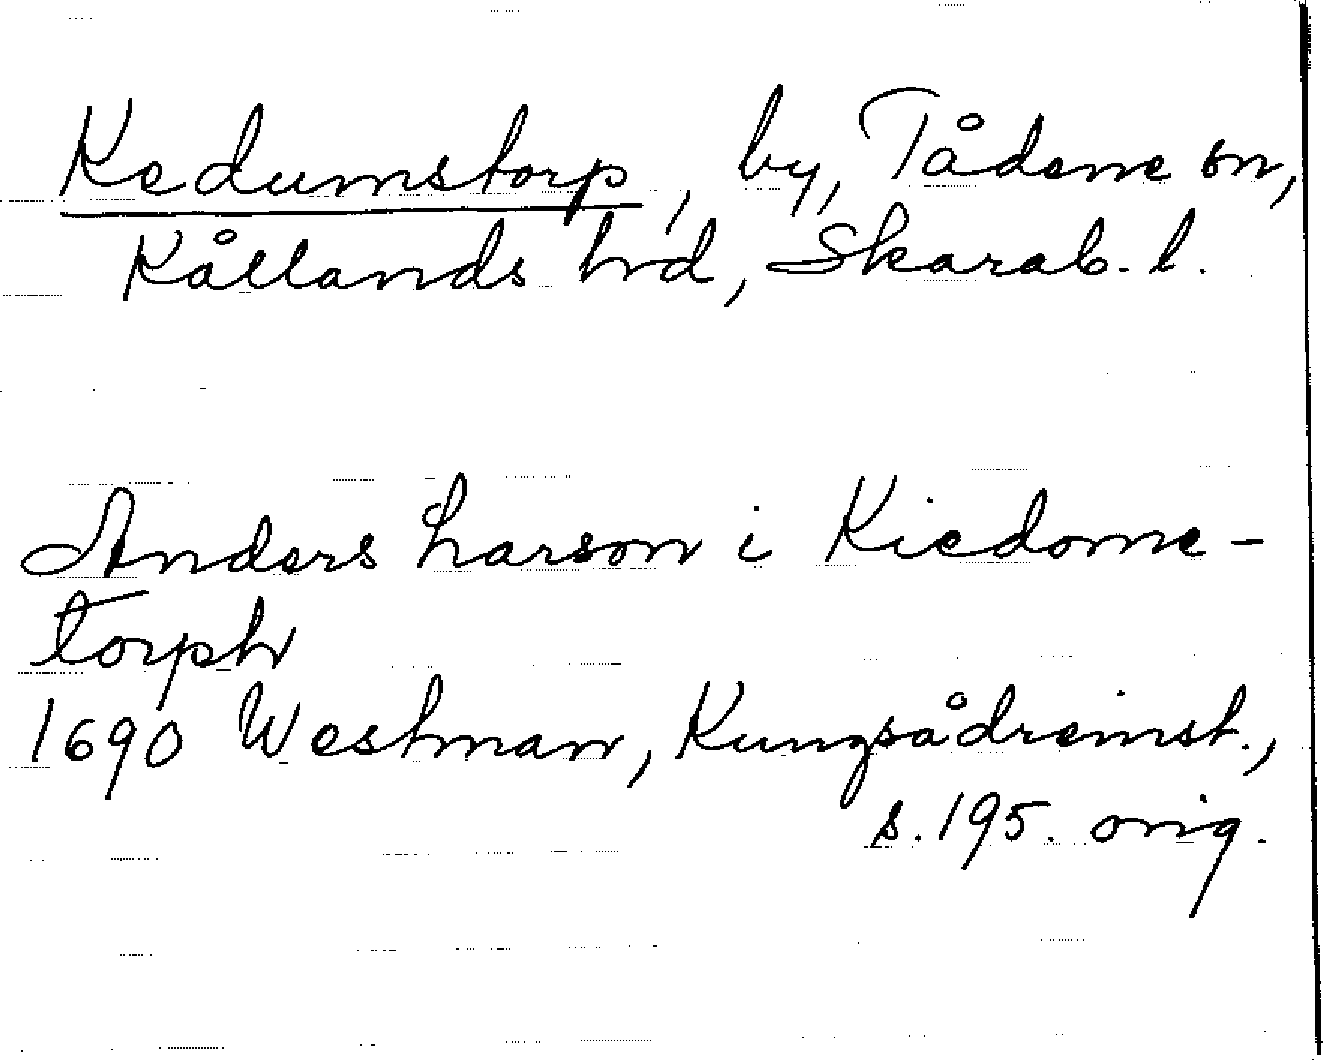 Kedumstorp, by, Tådene sn,
Kållands hrd, Skarab. l.
Anders Larson i Kiedome-
torph
1690 Westman, Kungsådreinst.,
s. 195. orig.